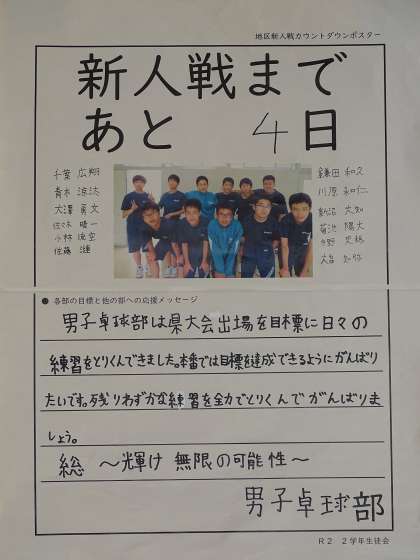 地区新人戦カウントダウンポスター
新人戦まで
あと 4日
千葉 広翔
青木 涼汰
大澤 勇文
佐々木 晴一
小林 流空
佐藤 漣
鎌田 和久
川原 和仁
菊池 陽大
● 各部の目標と他の部への応援メッセージ
男子卓球部は県大会出場を目標に日々の
練習をとりくんできました。本番では目標を達成できるようにがんばり
たいです。残りわずかな練習を全力でとりくんでがんばりま
しょう。
総 ～輝け 無限の可能性～
男子卓球部
R2 2学年生徒会